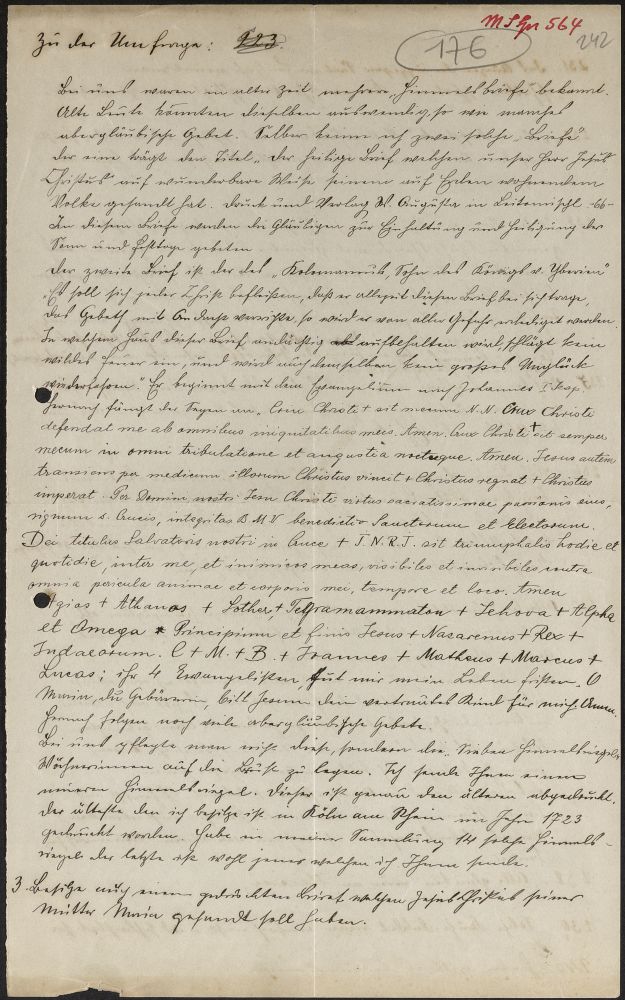 MSGn 564
242
176
Zu der Umfrage: 223.
Bei uns waren in alter Zeit mehrere „Himmelsbriefe" bekannt.
Alte Leute konnten dieselben auswendig, so wie manches
abergläubische Gebet. Selber kenne ich zwei solche „Briefe"
der eine trägt den Titel „Der heilige Brief welchen unser Herr Jesus
Christus" auf wunderbare Weise seinem auf Erden wohnendem
Volke gesandt hat. Druck und Verlag W. Augusta in Leitomischl -66-
In diesem Briefe werden die Gläubigen zur Einhaltung und Heiligung der
Sonn und Festtage gebeten
Der zweite Brief ist der des „Kolomannus, Sohn des Königs v. Yberien"
„Es soll sich jeder Christ befleißen, daß er allezeit diesen Brief bei sich trage,
das Gebeth mit Andacht verrichte, so wird er von aller Gefahr erlediget werden.
In welchem Haus dieser Brief andächtig aufbehalten wird, schlägt kein
wildes Feuer ein, und wird auch demselben kein großes Unglück
wiederfahren." Er beginnt mit dem Evangelium nach Johannes I Kap.
Hernach fängt der Segen an „Crux Christi + sit mecum N.N. Crux Christi
defendat me ab omnibus iniquitatibus meis. Amen. Crux Christi + sit semper
mecum in omni tribulatione et angustia nocteque. Amen. Jesus autem
transiens per medium illorum Christus vincit + Christus regnat + Christus
imperat. Per Domini nostri Jesu Christi virtus sacratissimae passionis eius,
signum s. Crucis, integritas B M V benedictio Sanctorum et Electorum.
Dei titulus Salvatoris nostri in Cruce + J.N.R.J. sit triumphalis hodie et
quotidie, inter me, et inimicos meas, visibiles et invisibiles contra
omnia pericula animae et corporis mei, tempore et loco. Amen
Agias + Athanas + Sother + Tetragrammaton + Jehova + Alpha
et Omega + Principium et finis Jesus + Nazarenus + Rex +
Judaeorum. C + M. + B. + Joannes + Matheus + Marcus +
Lucas; ihr 4 Evangelisten, tut mir mein Leben fristen. O
Maria, du Gebärerin, bitt Jesum dein vertrautes Kind für mich. Amen.
Hernach folgen noch viele abergläubische Gebete.
Bei uns pflegte man nicht diese, sondern die „Sieben Himmelsriegel"
Wöchnerinnen auf die Brust zu legen. Ich sende Ihnen einen
neueren Himmelsriegel. Dieser ist genau den älteren abgedruckt.
Der älteste den ich besitze ist in Köln am Rhein im Jahr 1723
gedruckt worden. Habe in meiner Sammlung 14 solche Himmels-
riegel der letzte ist wohl jener welchen ich Ihnen sende.
3. Besitze auch einen gedruckten Brief welchen Jesus Christus seiner
Mutter Maria gesandt soll haben.